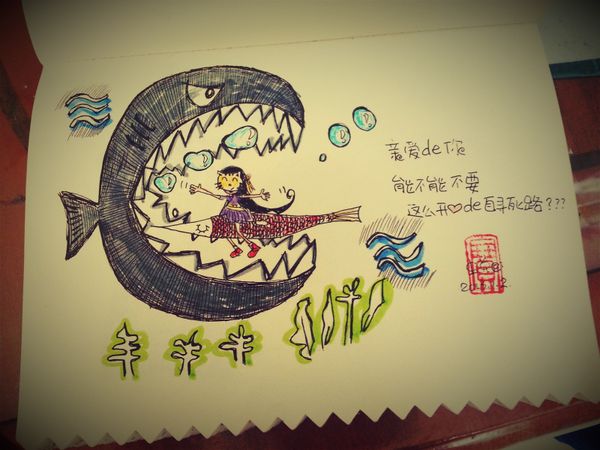 亲爱de你
能不能不要
这么开♡de自寻死路???